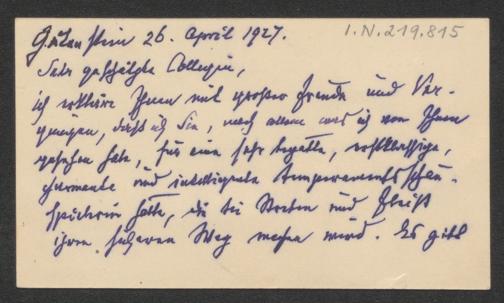 I.N. 219.815
26. April 1927.
Sehr geschätzte Collegin,
ich erkläre Ihnen mit großer Freude und Ver-
gnügen, daß ich Sie, nach allem was ich von Ihnen
gesehen habe, für eine sehr begabte, erstklassige,
charmante und intelligente Temperamentsschau-
spielerin halte, die bei Streben und Fleiß
ihren sicheren Weg machen wird. Es gibt